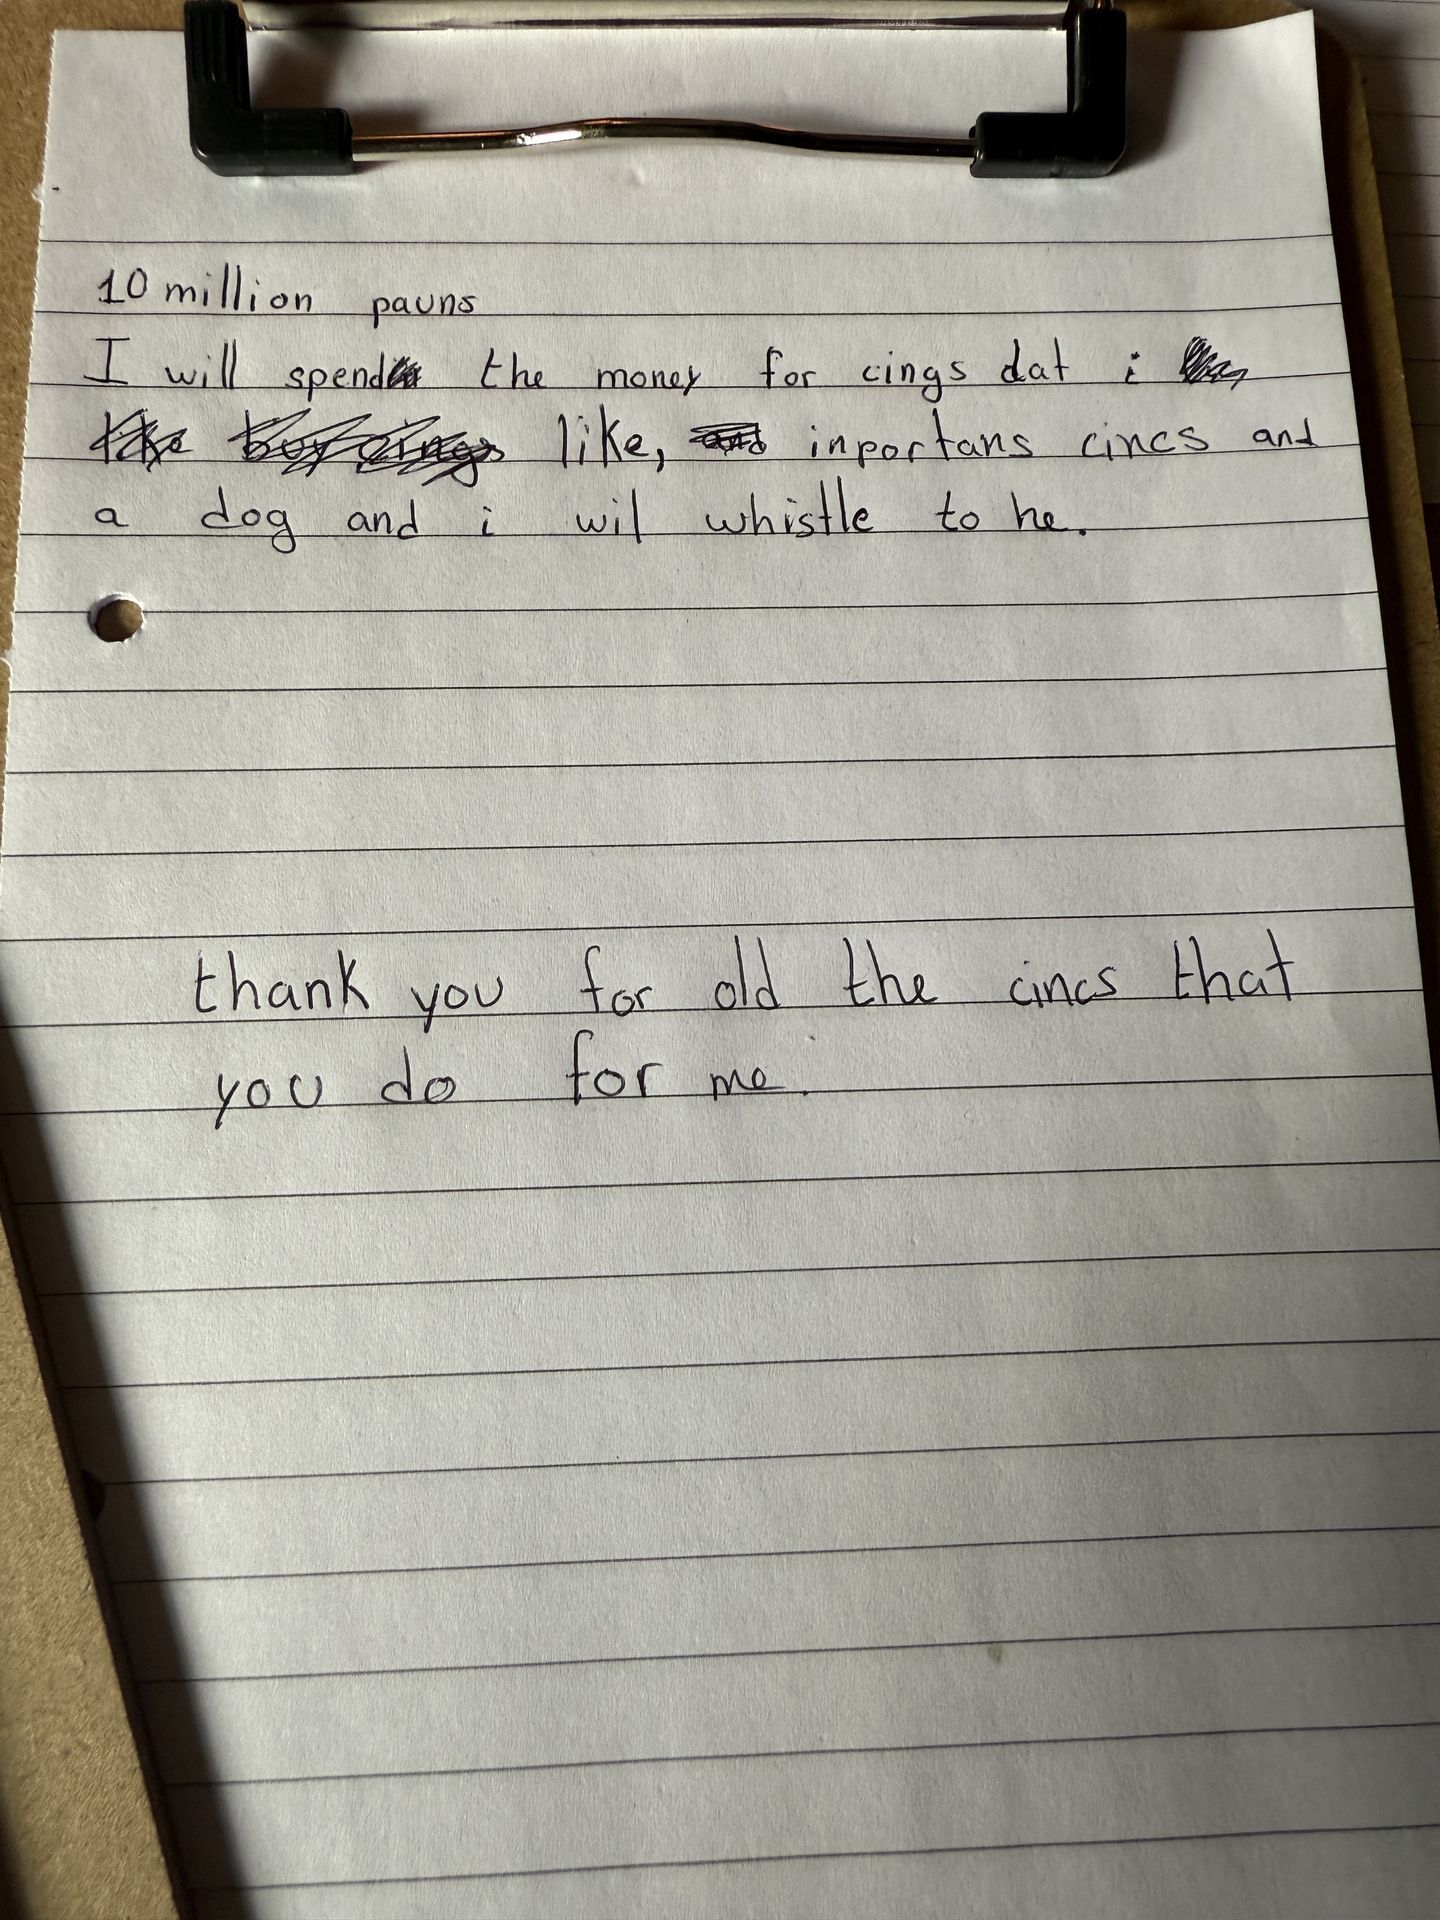 10 million pauns
I will spend the money for cings dat i
like, inportans cincs and
a dog and i wil whistle to he.
thank you for old the cincs that
you do for me.